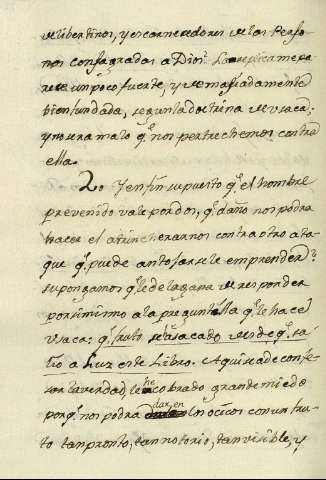 de libertinos, y escarnecedores de las Perso-
nas consagradas a Dios. La replica me pa-
rece un poco fuerte, y demasiadamente
bien fundada, segun la doctrina de Vsaca;
y no sera malo q.e nos pertrechemos contra
ella.
2. Y en fin supuesto q.e el hombre
prevenido vale por dos, q.e daño nos podra
hacer el atrincherarnos contra otro ata-
que q.e puede antojarsele emprender?
supongamos q.e le de la gana de responder
por si mismo a la pregunta q.e le hace
Vsaca: q.e fruto se ha sacado desde q.e sa-
lio a Luz este Libro. Aqui si de confe-
sar la verdad, le he cobrado grande miedo
porq.e nos podra dar en los ocicos con un fru-
to tan pronto, tan notorio, tan visible, y